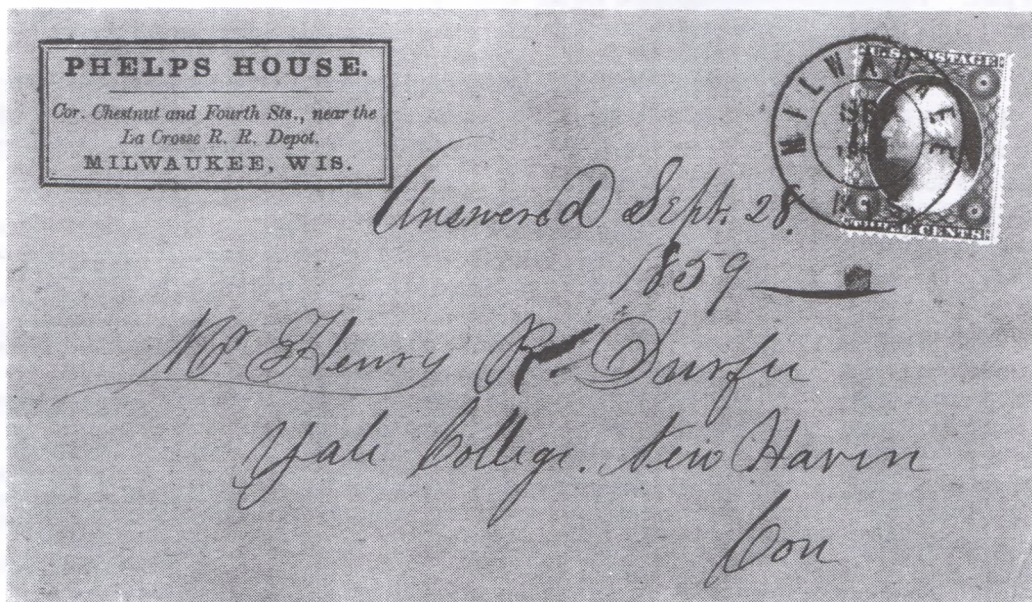 PHELPS HOUSE.
Cor. Chestnut and Fourth Sts., near the
La Crosse R. R. Depot.
MILWAUKEE, WIS.
MILWAUKEE
U.S. POSTAGE
THREE CENTS
Answered Sept. 28.
1859
Mr Henry R. Durfee
Yale College. New Haven
Con